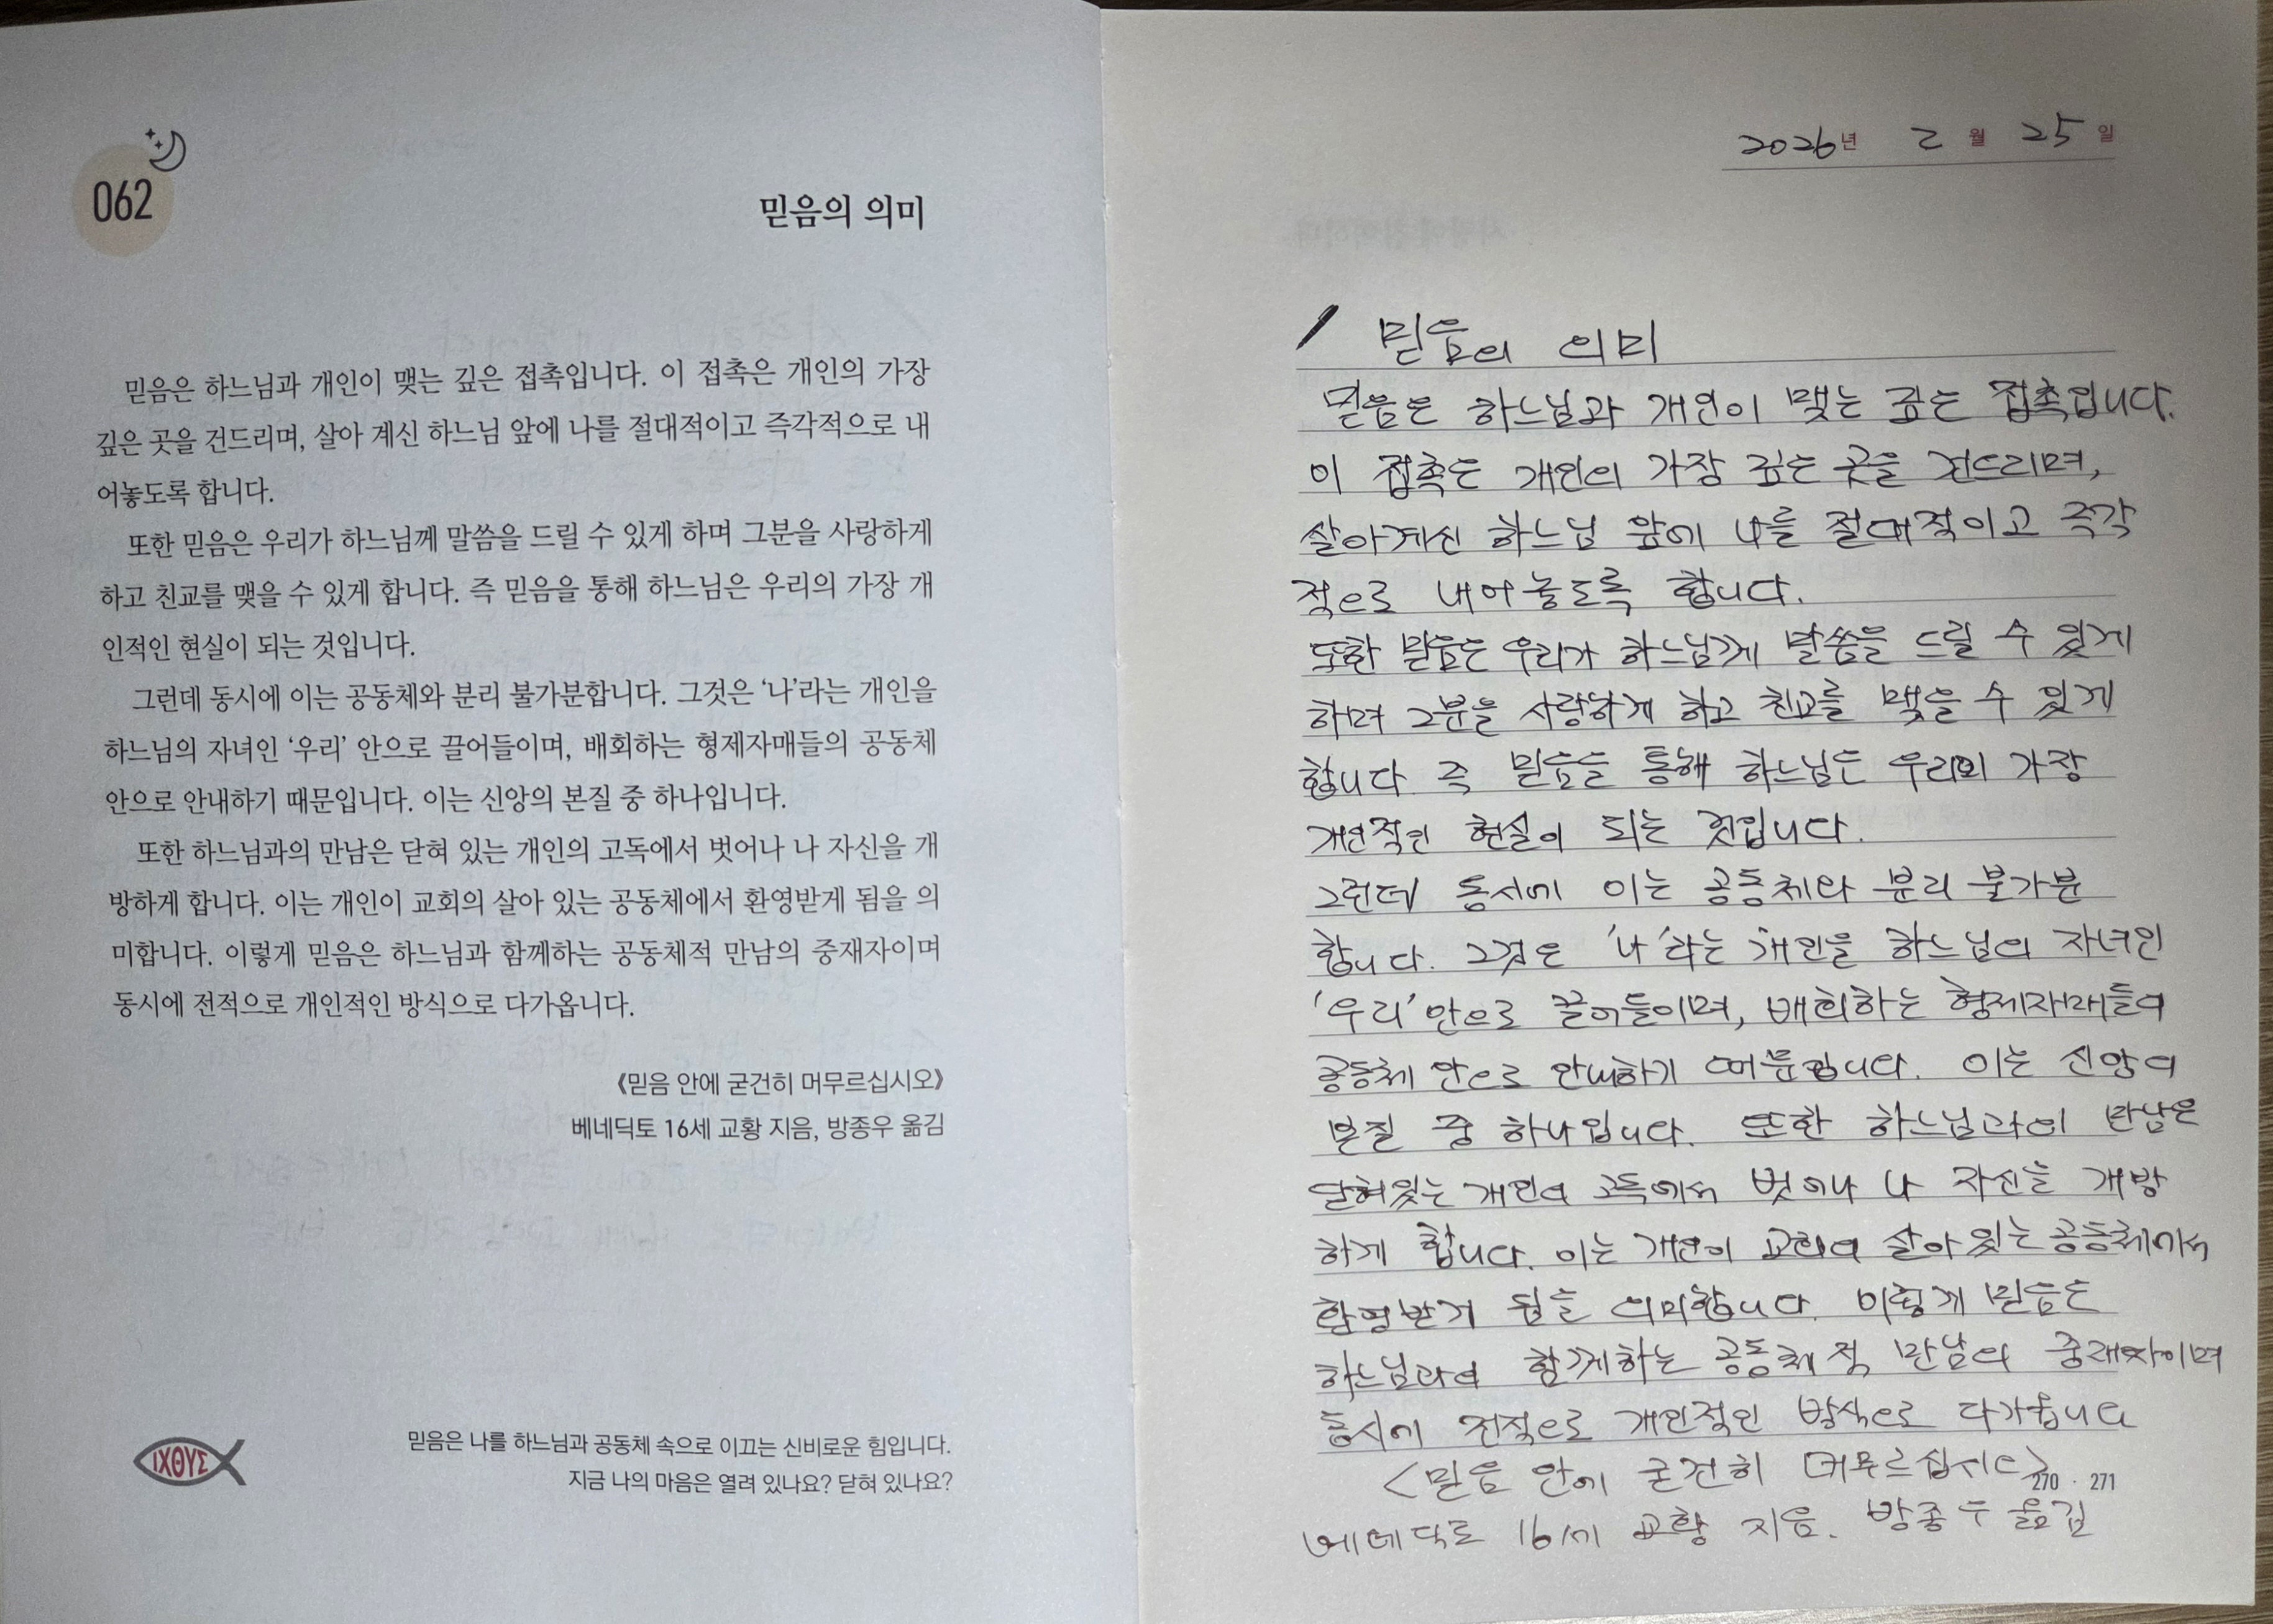 062
믿음의 의미
믿음은 하느님과 개인이 맺는 깊은 접촉입니다. 이 접촉은 개인의 가장
깊은 곳을 건드리며, 살아 계신 하느님 앞에 나를 절대적이고 즉각적으로 내
어놓도록 합니다.
또한 믿음은 우리가 하느님께 말씀을 드릴 수 있게 하며 그분을 사랑하게
하고 친교를 맺을 수 있게 합니다. 즉 믿음을 통해 하느님은 우리의 가장 개
인적인 현실이 되는 것입니다.
그런데 동시에 이는 공동체와 분리 불가분합니다. 그것은 ‘나’라는 개인을
하느님의 자녀인 ‘우리’ 안으로 끌어들이며, 배회하는 형제자매들의 공동체
안으로 안내하기 때문입니다. 이는 신앙의 본질 중 하나입니다.
또한 하느님과의 만남은 닫혀 있는 개인의 고독에서 벗어나 나 자신을 개
방하게 합니다. 이는 개인이 교회의 살아 있는 공동체에서 환영받게 됨을 의
미합니다. 이렇게 믿음은 하느님과 함께하는 공동체적 만남의 중재자이며
동시에 전적으로 개인적인 방식으로 다가옵니다.
《믿음 안에 굳건히 머무르십시오》
베네딕토 16세 교황 지음, 방종우 옮김
ΙΧΘΥΣ
믿음은 나를 하느님과 공동체 속으로 이끄는 신비로운 힘입니다.
지금 나의 마음은 열려 있나요? 닫혀 있나요?
2026년 2월 25일
믿음의 의미
믿음은 하느님과 개인이 맺는 깊은 접촉입니다.
이 접촉은 개인의 가장 깊은 곳을 건드리며,
살아계신 하느님 앞에 나를 절대적이고 즉각
적으로 내어놓도록 합니다.
또한 믿음은 우리가 하느님께 말씀을 드릴 수 있게
하며 그분을 사랑하게 하고 친교를 맺을 수 있게
합니다 즉 믿음을 통해 하느님은 우리의 가장
개인적인 현실이 되는 것입니다.
그런데 동시에 이는 공동체와 분리 불가분
합니다. 그것은 '나'라는 개인을 하느님의 자녀인
'우리' 안으로 끌어들이며, 배회하는 형제자매들의
공동체 안으로 안내하기 때문입니다. 이는 신앙의
본질 중 하나입니다. 또한 하느님과의 만남은
닫혀있는 개인의 고독에서 벗어나 나 자신을 개방
하게 합니다. 이는 개인이 교회의 살아있는 공동체에서
환영받게 됨을 의미합니다. 이렇게 믿음은
하느님과의 함께하는 공동체적 만남의 중재자이며
동시에 전적으로 개인적인 방식으로 다가옵니다
<믿음 안에 굳건히 머무르십시오>
270 · 271
베네딕토 16세 교황 지음. 방종우 옮김